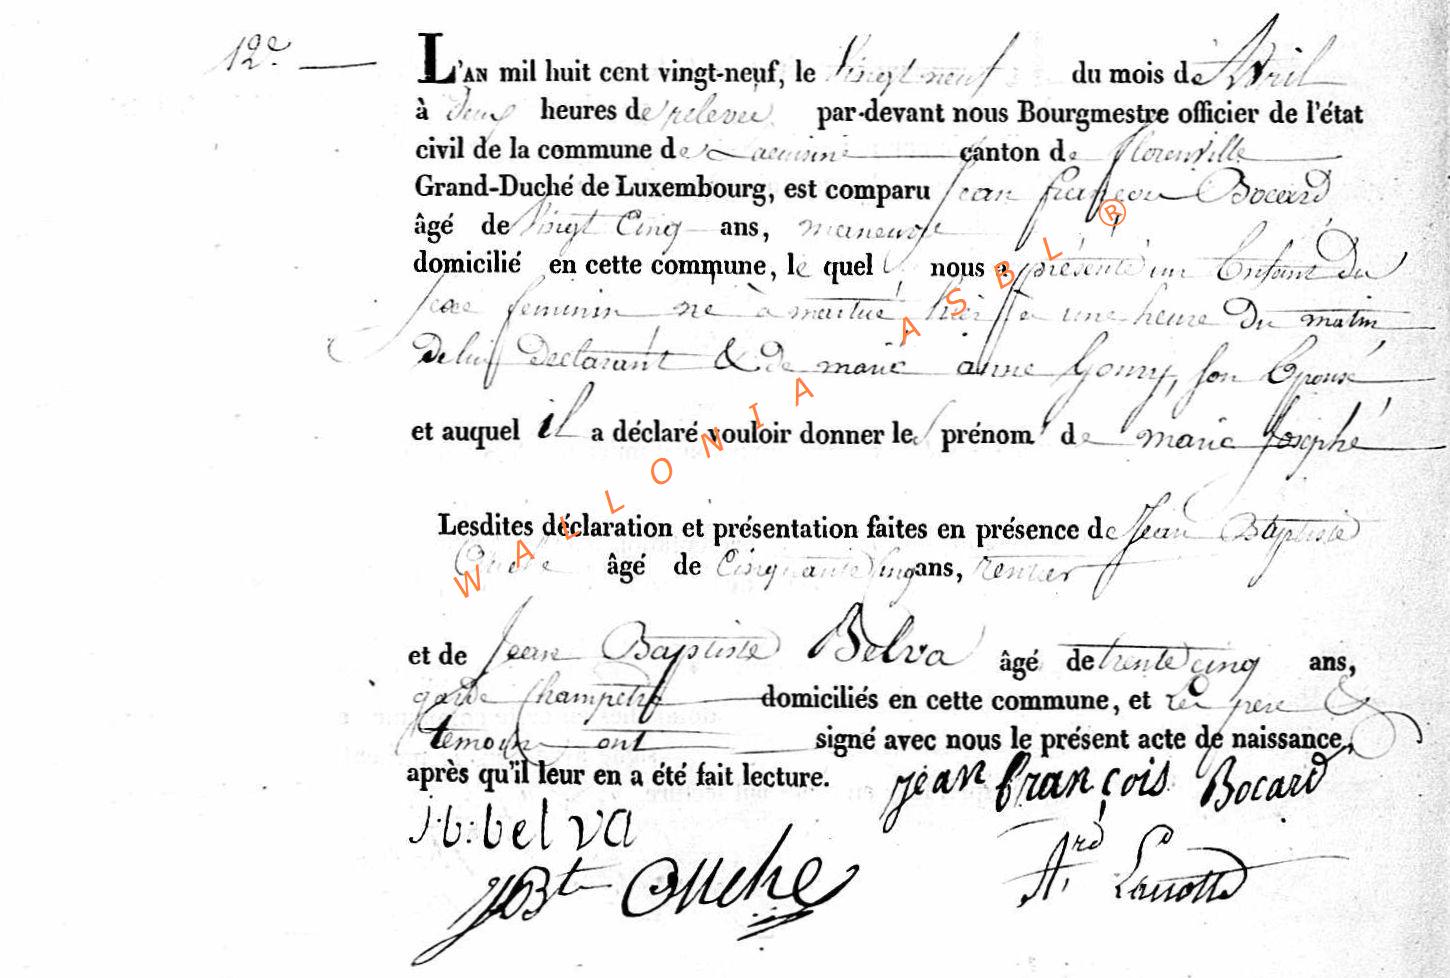 12e.
L'AN mil huit cent vingt-neuf, le Vingt neuf du mois de Avril
à deux heures de relevée par-devant nous Bourgmestre officier de l'état
civil de la commune de canton de florenville
Grand-Duché de Luxembourg, est comparu Jean françois Bocard
âgé de Vingt Cinq ans, maneuvre
domicilié en cette commune, le quel nous a présenté un Enfant du
sexe feminin né à martué hier à une heure du matin
de lui declarant & de marie anne Goury, son Epouse
et auquel il a déclaré vouloir donner les prénoms de marie Josephe
Lesdites déclaration et présentation faites en présence de Jean Baptiste
âgé de Cinquante cinq ans, rentier
et de Jean Baptiste Belva âgé de trente cinq ans,
garde Champetre domiciliés en cette commune, et les pere &
temoins ont signé avec nous le présent acte de naissance,
après qu'il leur en a été fait lecture. jean françois Bocard
j.b.belva
JBte
Ard
WALLONIA ASBL ®